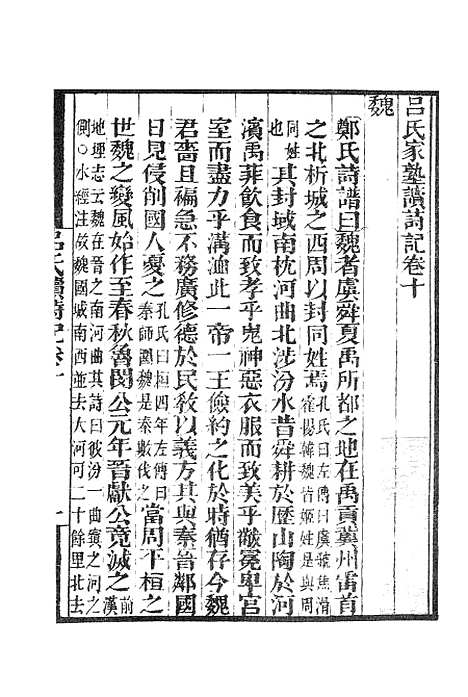 呂氏家塾讀詩記卷十
魏
鄭氏詩譜曰魏者虞舜夏禹所都之地在禹貢冀州雷首
之北析城之西周以封同姓焉孔氏曰左傳曰虞虢焦滑霍楊韓魏皆姬姓是與周
同姓也其封域南枕河曲北涉汾水昔舜耕於歷山陶於河
濱禹菲飲食而致孝乎鬼神惡衣服而致美乎黻冕卑宮
室而盡力乎溝洫此一帝一王儉約之化於時猶存今魏
君嗇且褊急不務廣修德於民敎以義方其與秦晉鄰國
日見侵削國人憂之孔氏曰桓四年左傳曰秦師圍魏是秦數伐之當周平桓之
世魏之變風始作至春秋魯閔公元年晉獻公竟滅之前漢
地理志云魏在晉之南河曲其詩曰彼汾一曲寘之河之
側○水經注故魏國城南西並去大河可二十餘里北去
呂氏讀詩記卷十
一